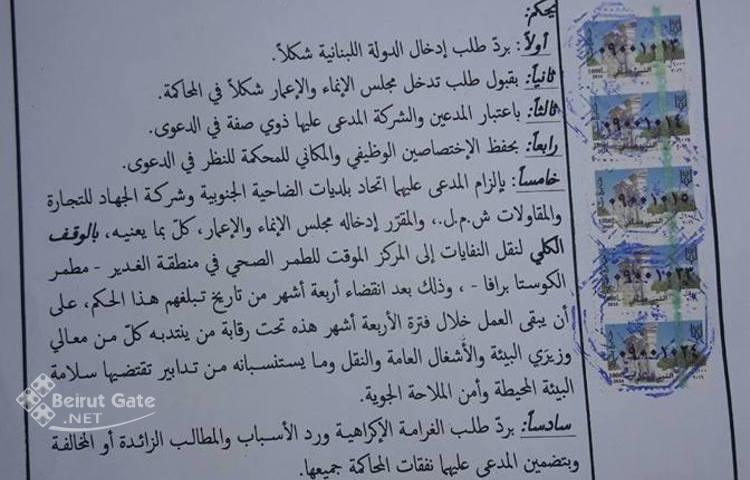 يحكم:
أولاً: بردّ طلب إدخال الدولة اللبنانية شكلاً.
ثانياً: بقبول طلب تدخل مجلس الإنماء والإعمار شكلاً في المحاكمة.
ثالثاً: باعتبار المدعين والشركة المدعى عليها ذوي صفة في الدعوى.
رابعاً: بحفظ الإختصاصين الوظيفي والمكاني للمحكمة للنظر في الدعوى.
خامساً: بإلزام المدعى عليهما اتحاد بلديات الضاحية الجنوبية وشركة الجهاد للتجارة
والمقاولات ش.م.ل.، والمقرّر إدخاله مجلس الإنماء والإعمار، كلّ بما يعنيه، بالوقف
الكلي لنقل النفايات إلى المركز الموقت للطمر الصحي في منطقة الغدير - مطمر
الكوستا برافا - ، وذلك بعد انقضاء أربعة أشهر من تاريخ تبلغهم هذا الحكم، على
أن يبقى العمل خلال فترة الأربعة أشهر هذه تحت رقابة من ينتدبه كلّ من معالي
وزيرَي البيئة والأشغال العامة والنقل وما يستنسبانه من تدابير تقتضيها سلامة
البيئة المحيطة وأمن الملاحة الجوية.
سادساً: بردّ طلب الغرامة الإكراهية ورد الأسباب والمطالب الزائدة أو المخالفة
وبتضمين المدعى عليهما نفقات المحاكمة جميعها.
٠٩٠٠١٠١٤
٠٩٠٠١٠١٥
٠٩٠٠١٠٢٣
٠٩٠٠١٠٢٤
Beirut Gate
.NET